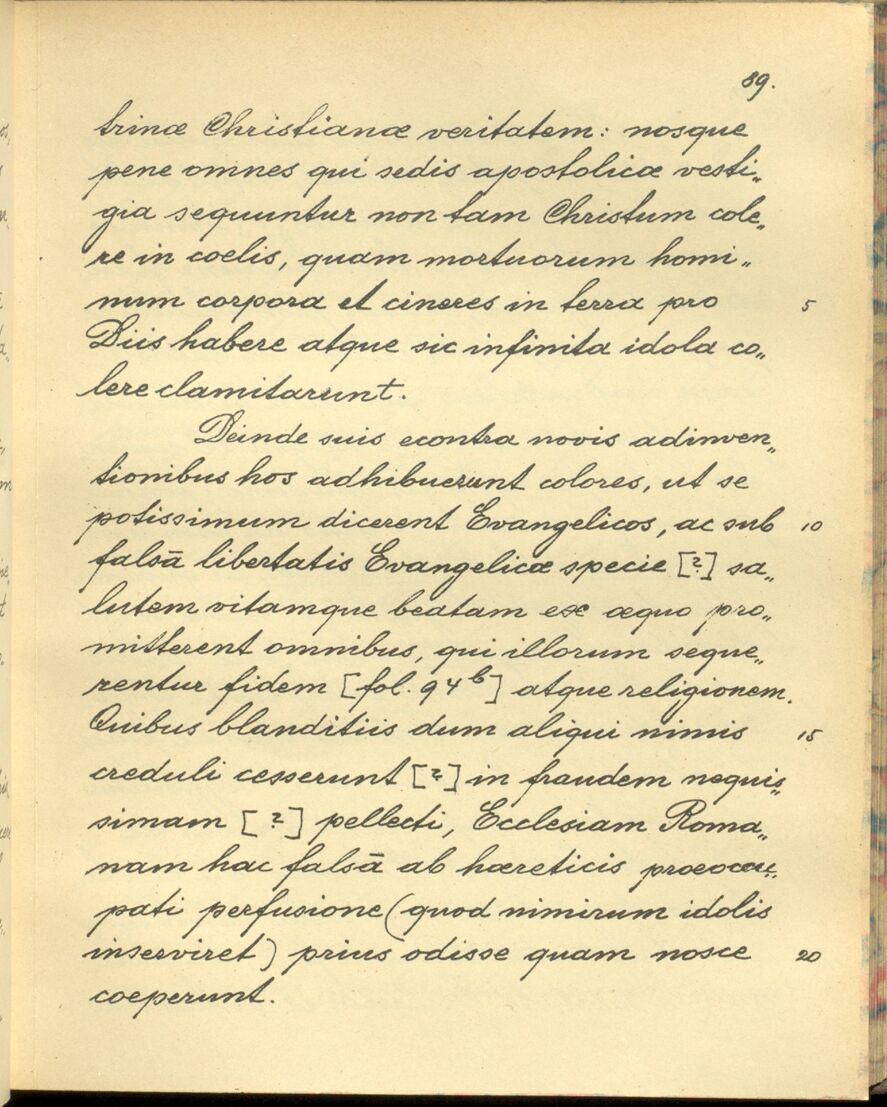 89.
trinæ Christianæ veritatem: nosque
pene omnes qui sedis apostolicæ vesti„
gia sequuntur non tam Christum cole„
re in coelis, quam mortuorum homi„
num corpora et cineres in terra pro 5
Diis habere atque sic infinita idola co„
lere clamitarunt.
Deinde suis econtra novis adinven„
tionibus hos adhibuerunt colores, ut se
potissimum dicerent Evangelicos, ac sub 10
falsā libertatis Evangelicæ specie [?] sa„
lutem vitamque beatam ex æquo pro„
mitterent omnibus, qui illorum seque„
rentur fidem [fol. 94ᵇ] atque religionem.
Quibus blanditiis dum aliqui nimis 15
creduli cesserunt [?] in fraudem nequis„
simam [?] pellecti, Ecclesiam Roma„
nam hac falsā ab hæreticis præoccu„
pati perfusione (quod nimirum idolis
inserviret) prius odisse quam nosce 20
coeperunt.